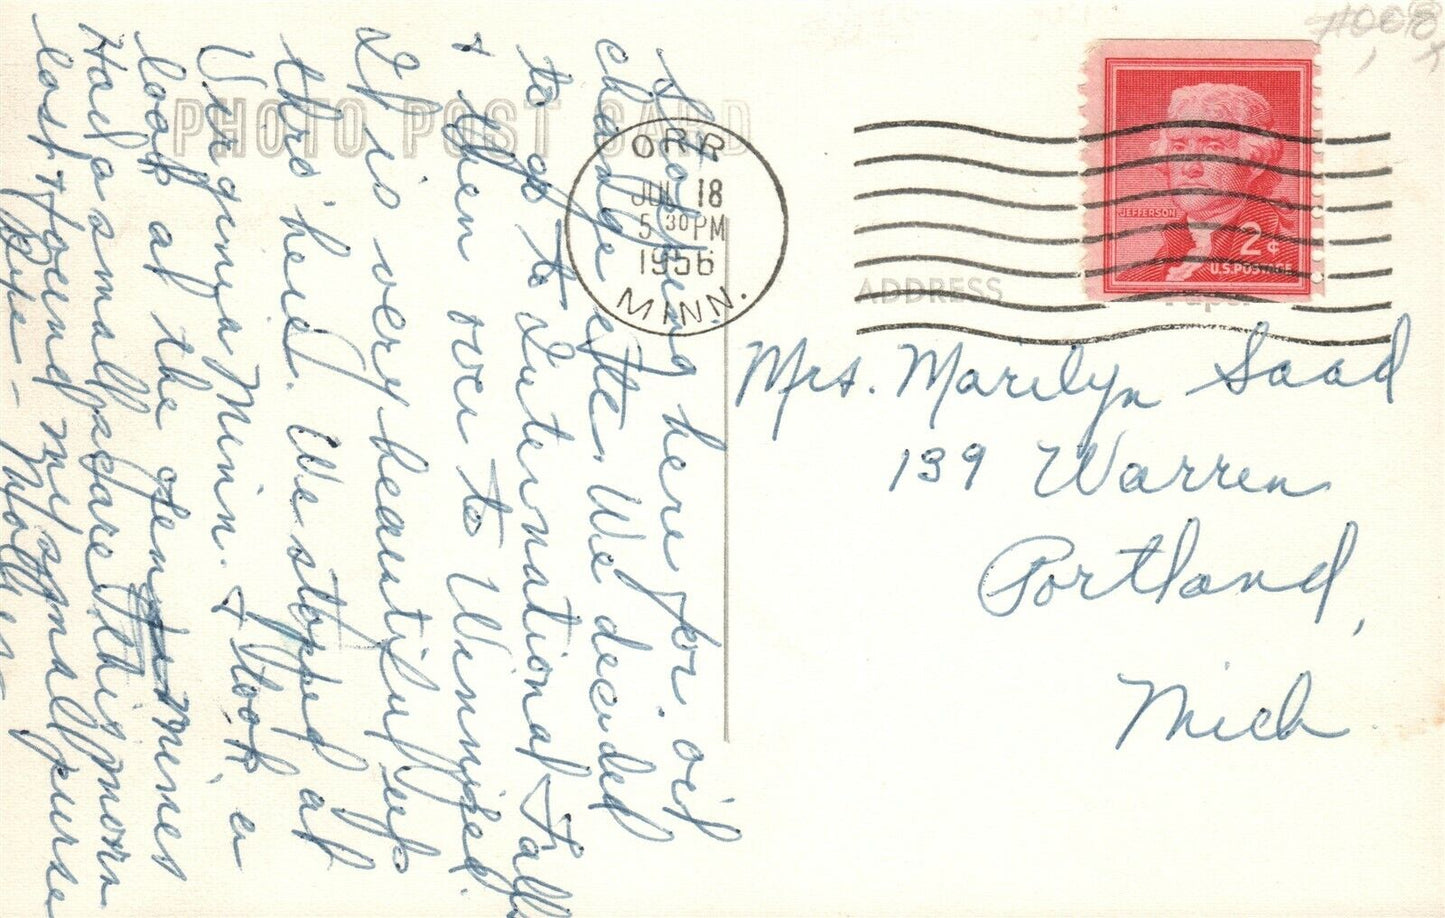 PHOTO POST CARD
ORR
JUL 18
5 30 PM
1956
MINN.
JEFFERSON
2¢
U.S. POSTAGE
ADDRESS
Mrs. Marilyn Saad
139 Warren
Portland,
Mich
Stopping here for oil
change etc. We decided
to go to International Falls
& then over to Winnipeg.
It is very beautiful up
thro' here. We stopped at
Virginia Minn. & took a
look at the mines
Had a small scare this morn
lost & found my small purse
Bye -